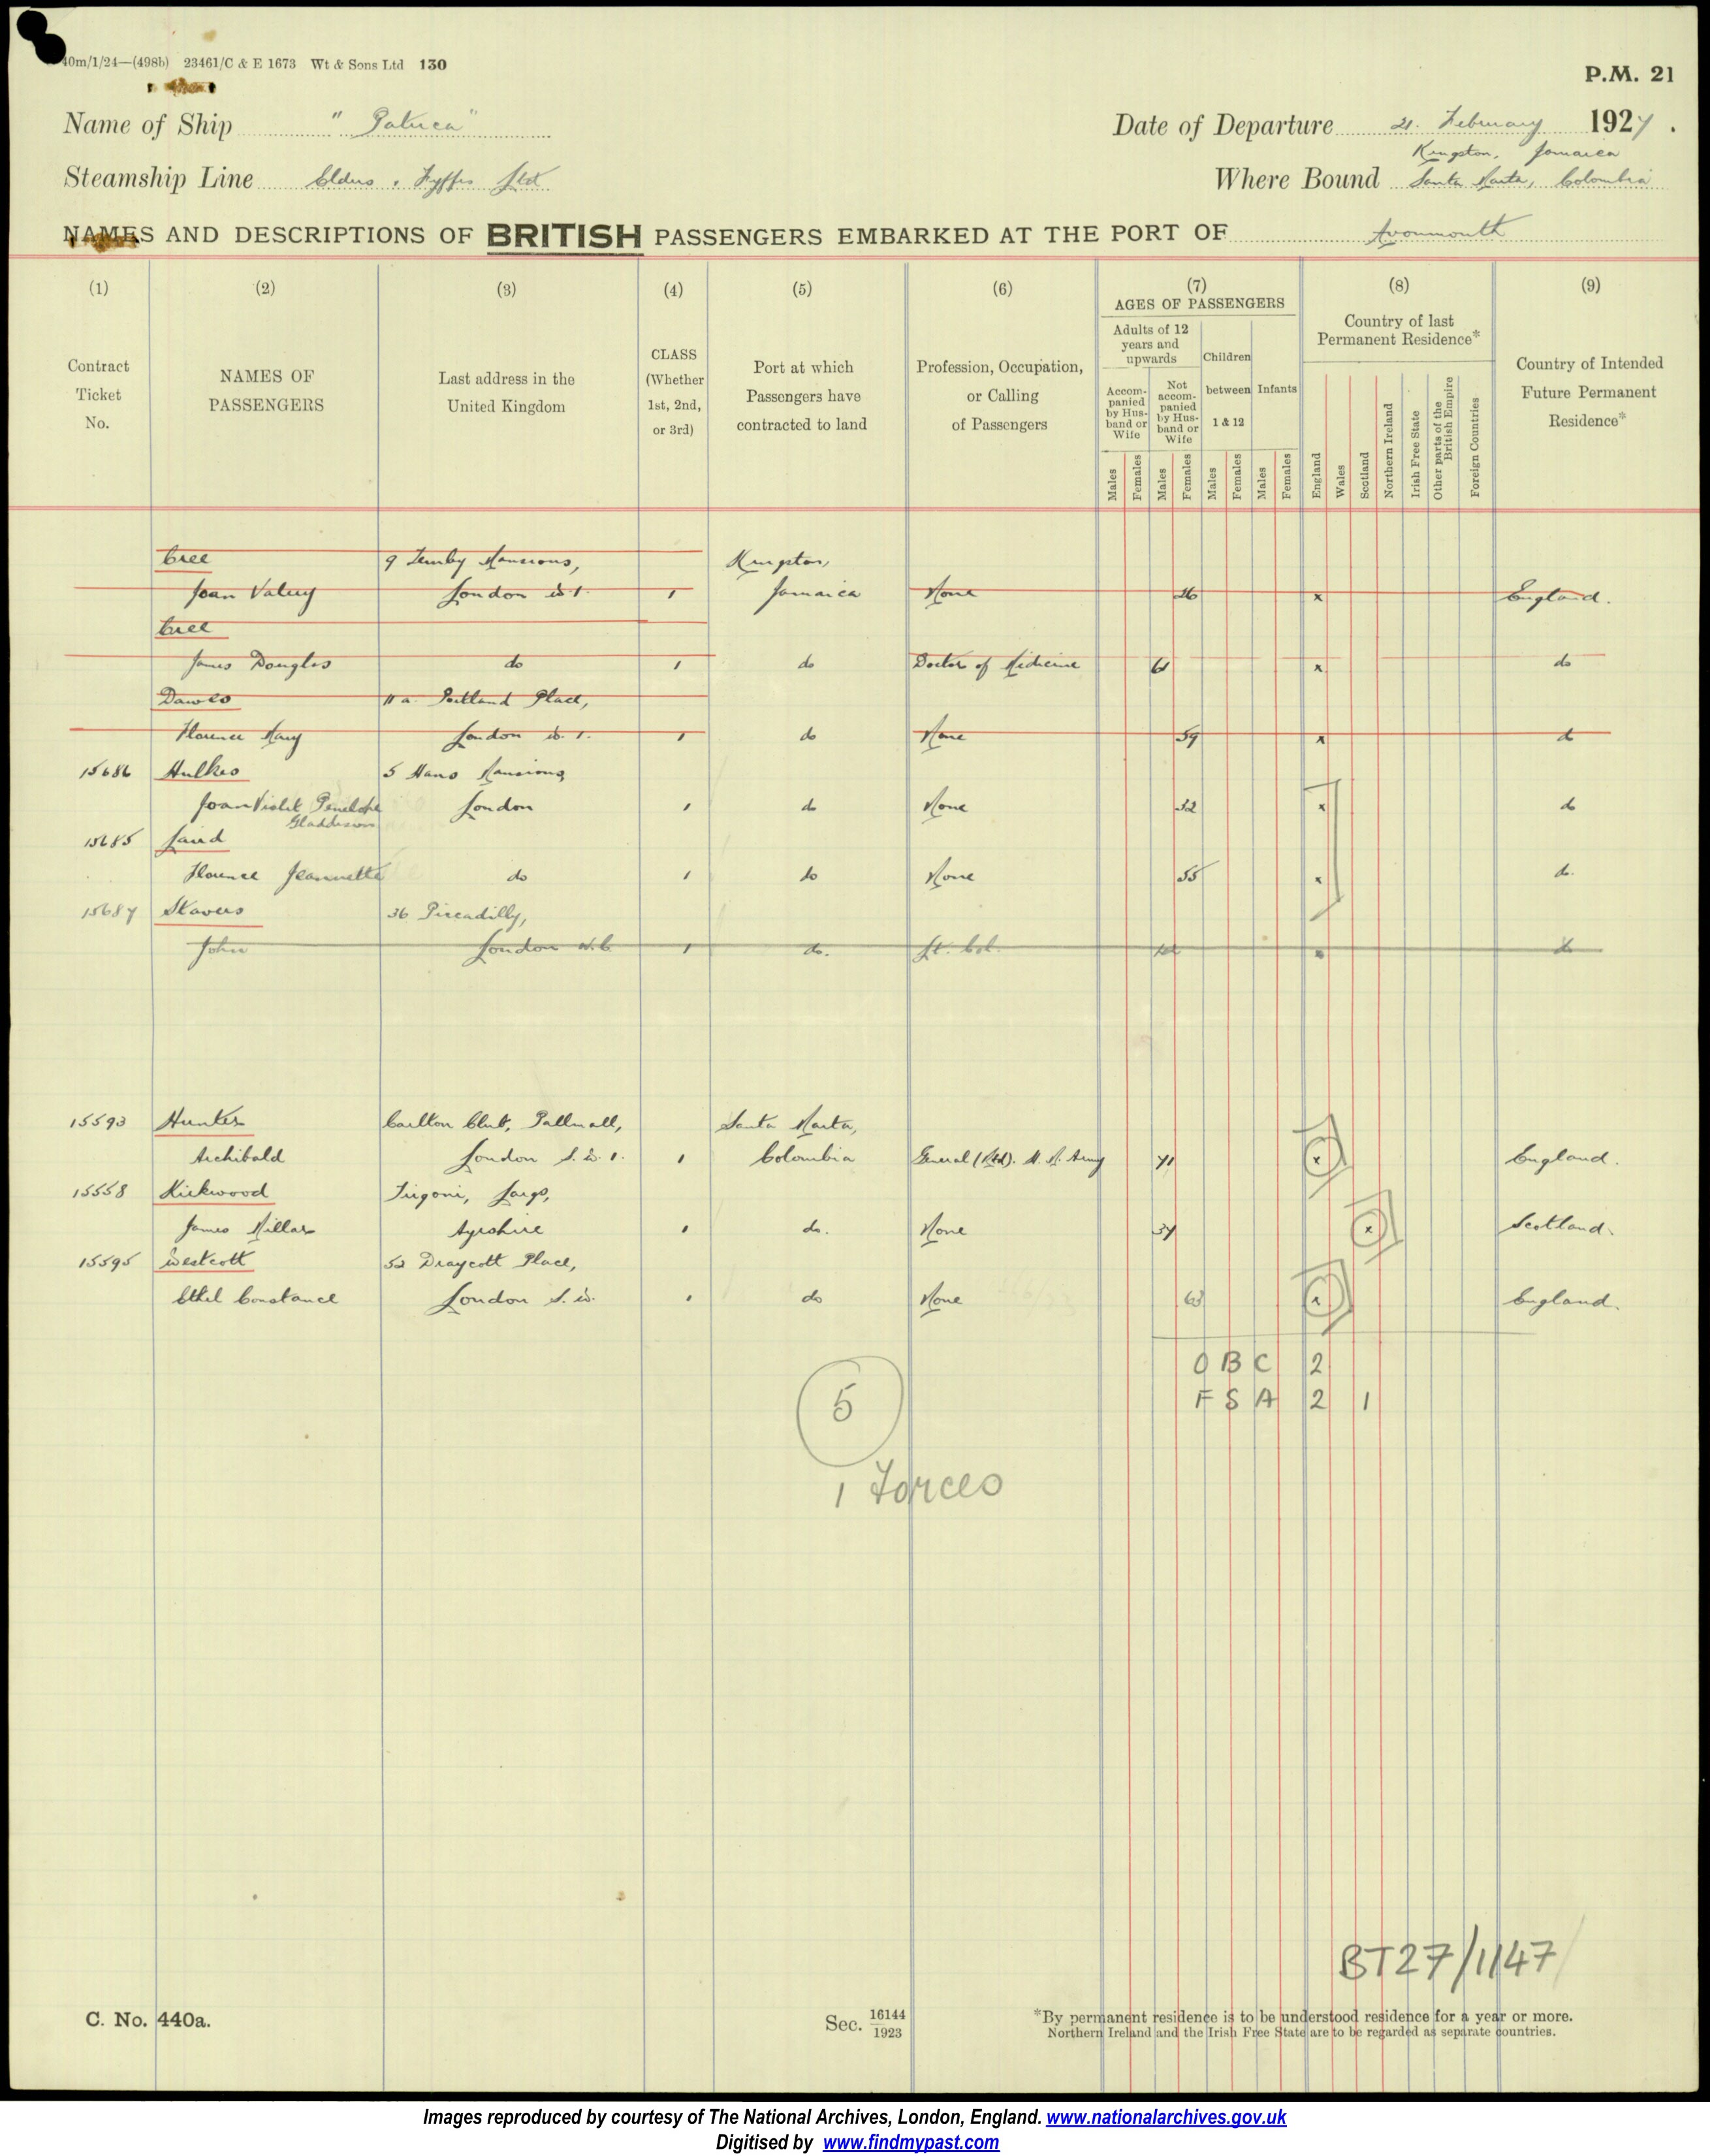 40m/1/24—(498b) 23461/C & E 1673 Wt & Sons Ltd 130
P.M. 21
Name of Ship "Patuca"
Date of Departure 21. February 1927.
Kingston, Jamaica
Steamship Line Elders & Fyffes Ltd
Where Bound Santa Marta, Colombia
NAMES AND DESCRIPTIONS OF BRITISH PASSENGERS EMBARKED AT THE PORT OF Avonmouth
(1) (2) (3) (4) (5) (6) (7) (8) (9)
Contract Ticket No.
NAMES OF PASSENGERS
Last address in the United Kingdom
CLASS (Whether 1st, 2nd, or 3rd)
Port at which Passengers have contracted to land
Profession, Occupation, or Calling of Passengers
AGES OF PASSENGERS
Adults of 12 years and upwards
Accompanied by Husband or Wife
Not accompanied by Husband or Wife
Children between 1 & 12
Infants
Males Females Males Females Males Females Males Females
Country of last Permanent Residence*
England Wales Scotland Northern Ireland Irish Free State Other parts of the British Empire Foreign Countries
Country of Intended Future Permanent Residence*
Cree 9 Tenby Mansions, Kingston,
Joan Valery London W.1. 1 Jamaica None 26 x England.
Cree
James Douglas do 1 do Doctor of Medicine 61 x do
Dawes 11a. Portland Place,
Florence Mary London W.1. 1 do None 59 x do
15686 Hulkes 5 Hans Mansions,
Joan Violet Penelope London 1 do None 32 x do
15685 Laird
Florence Jeannette do 1 do None 55 x do.
15687 Stavers 36 Piccadilly,
John London W.C. 1 do. Lt. Col. x do
15593 Hunter Carlton Club, Pallmall, Santa Marta,
Archibald London S.W.1. 1 Colombia General (Rtd). H.M. Army 71 x England.
15558 Kirkwood Largs,
James Millar Ayrshire 1 do. None 37 x Scotland.
15595 Westcott 52 Draycott Place,
Ethel Constance London S.W. 1 do None 63 x England.
O B C 2
F S A 2 1
5
1 Forces
BT27/1147
C. No. 440a.
Sec. 16144/1923
*By permanent residence is to be understood residence for a year or more.
Northern Ireland and the Irish Free State are to be regarded as separate countries.
Images reproduced by courtesy of The National Archives, London, England. www.nationalarchives.gov.uk
Digitised by www.findmypast.com